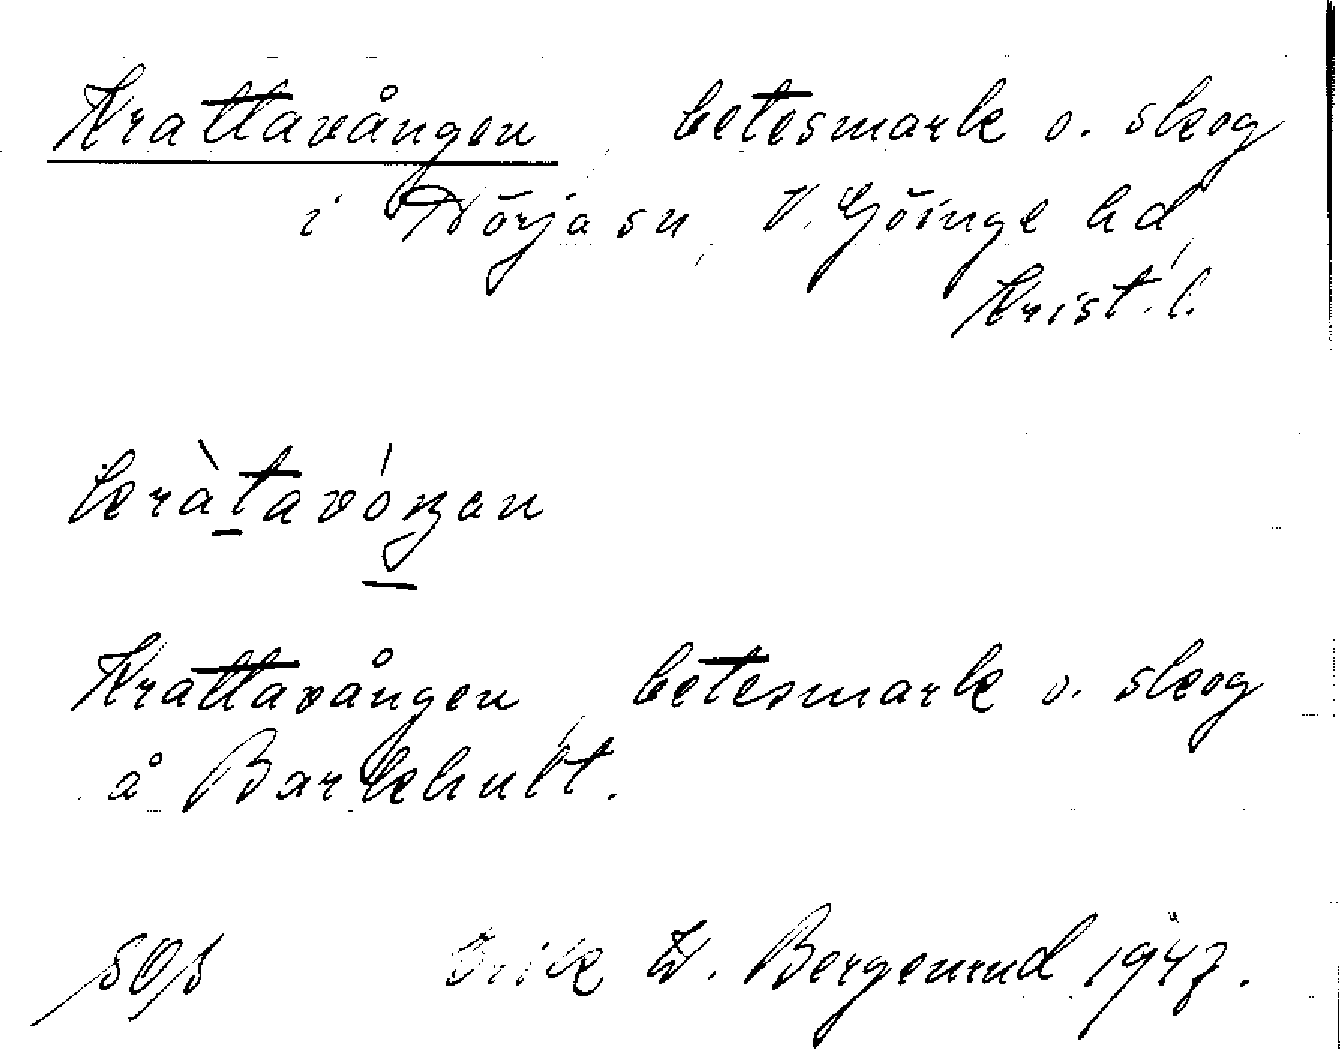 Krattavången, betesmark o. skog
i Nörja sn, V. Göinge hd,
Krist. l.
kràtavóŋan
Krattavången, betesmark o. skog
å Barkhult.
Erik W. Bergenrud 1947.